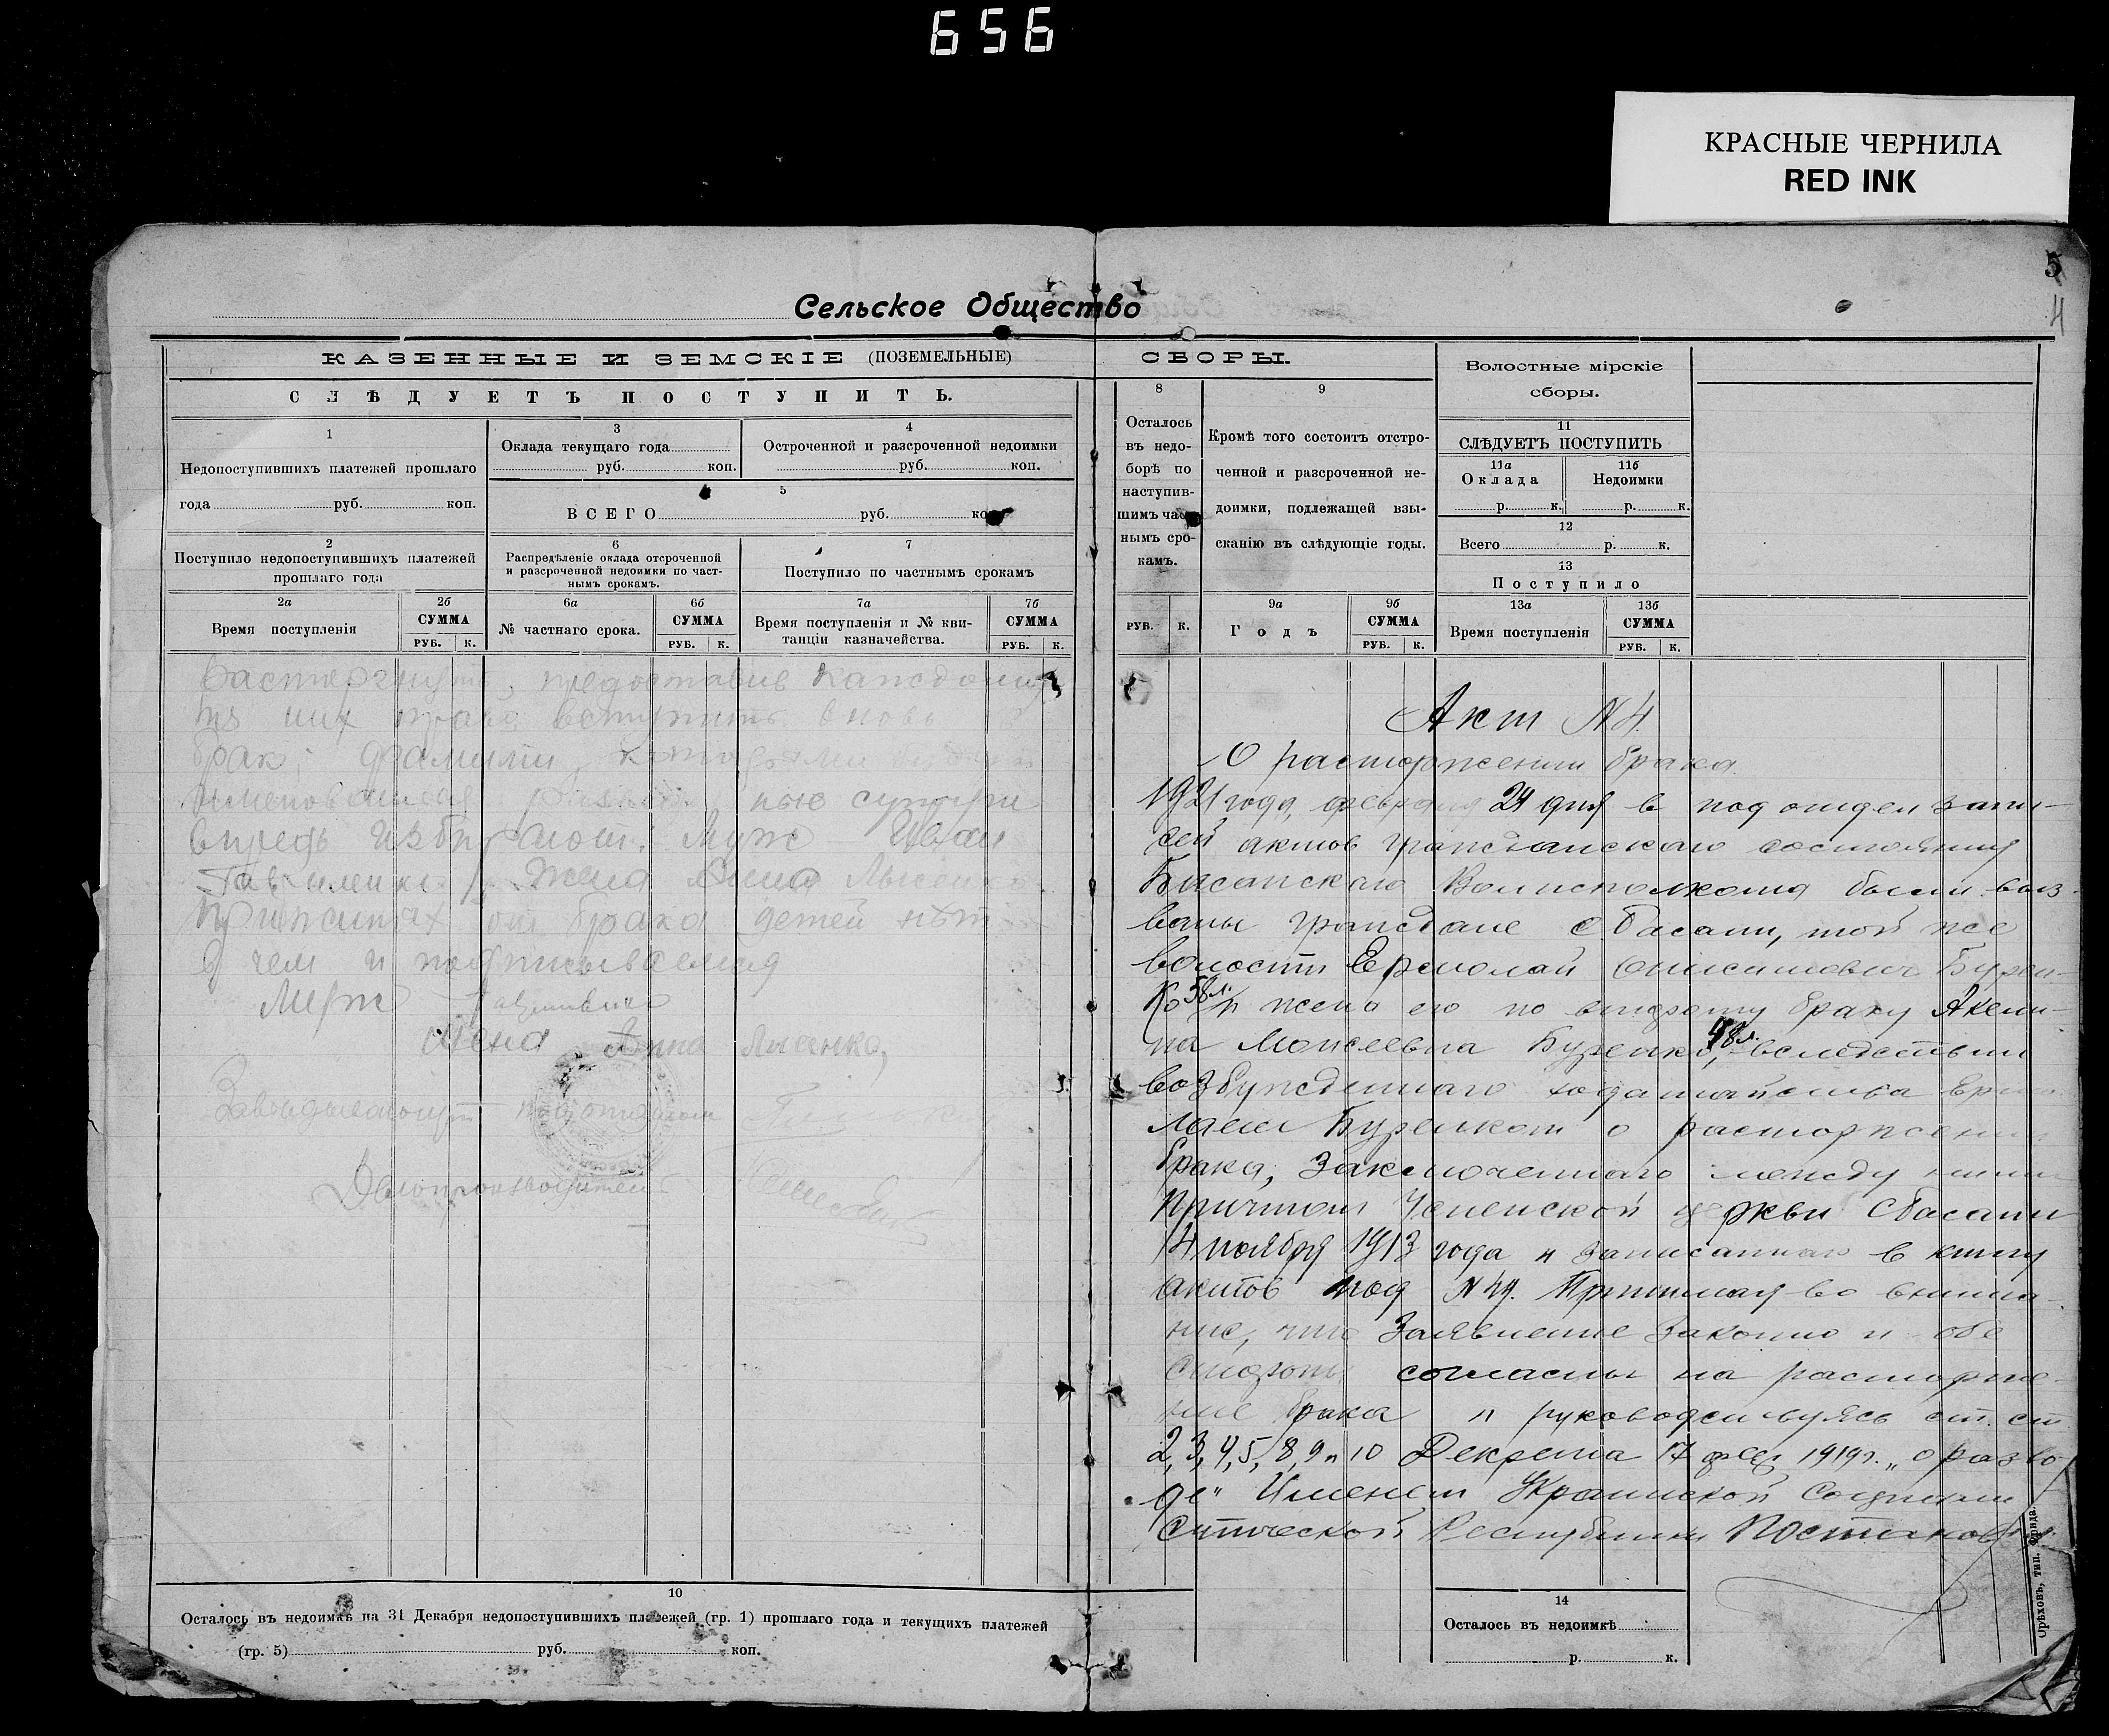 656
КРАСНЫЕ ЧЕРНИЛА
RED INK
5
4
Сельское Общество
КАЗЕННЫЕ И ЗЕМСКІЕ (ПОЗЕМЕЛЬНЫЕ) СБОРЫ.
СЛѢДУЕТЪ ПОСТУПИТЬ.
1
Недопоступившихъ платежей прошлаго
года руб. коп.
2
Поступило недопоступившихъ платежей
прошлаго года
2а
Время поступленія
2б
СУММА
РУБ. К.
3
Оклада текущаго года
руб. коп.
4
Остроченной и разсроченной недоимки
руб. коп.
5
ВСЕГО руб.
6
Распредѣленіе оклада отсроченной
и разсроченной недоимки по част-
нымъ срокамъ.
6а
№ частнаго срока.
6б
СУММА
РУБ. К.
7
Поступило по частнымъ срокамъ
7а
Время поступленія и № кви-
танціи казначейства.
7б
СУММА
РУБ. К.
8
Осталось
въ недо-
борѣ по
наступив-
шимъ част-
нымъ сро-
камъ.
РУБ. К.
9
Кромѣ того состоитъ отстро-
ченной и разсроченной не-
доимки, подлежащей взы-
сканію въ слѣдующіе годы.
9а
Годъ
9б
СУММА
РУБ. К.
Волостные мірскіе
сборы.
11
СЛѢДУЕТЪ ПОСТУПИТЬ
11а
Оклада
р. к.
11б
Недоимки
р. к.
12
Всего р. к.
13
Поступило
13а
Время поступленія
13б
СУММА
РУБ. К.
Расторгнуть, предоставив каждому
из них право вступить вновь в
брак; фамилии, которыми будут
именоваться супруги
впредь избирают: Муж Иван
Жена Анна Лысенко
Прижитых от брака детей нет
в чем и подписываемся
Муж
Жена Анна Лысенко,
Заведывающий подотделом
Делопроизводитель
Акт N 4.
О расторжении брака
1921 года, февраля 24 дня в под отдел запи-
сей актов гражданского состояния
Басанского Волисполкома были выз-
ваны граждане с Басани, той же
волости Ермолай Бурен-
ко 58 л. и жена его по второму браку Акели-
на Моисеевна Буренко, 48 л. вследствии
возбужденного ходатайства Ермо
лаем Буренком о расторжении
брака, заключенного между ними
причтом Успенской церкви с Басани
14 ноября 1913 года и записанного в книгу
актов под N 44. Принимая во внима-
ние, что заявление законно и обе
стороны согласны на расторже-
ние брака и руководствуясь ст. ст.
2, 3, 4, 5, 8, 9 и 10 Декрета 17 фев 1919 г. „о разво
де" Именем Украинской Социали
стической Республики Постановил
10
Осталось въ недоимкѣ на 31 Декабря недопоступившихъ платежей (гр. 1) прошлаго года и текущихъ платежей
(гр. 5) руб. коп.
14
Осталось въ недоимкѣ
р. к.
Орѣховъ, тип. Фрида.